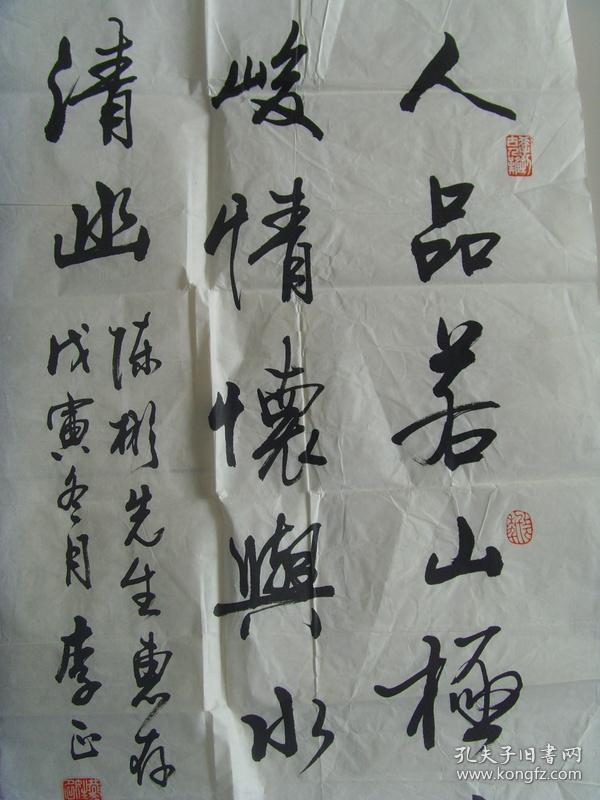 人品若山極
峻情懷與水
清幽
陳彬先生惠存
戊寅冬月 李正
孔夫子旧书网
www.kongfz.com